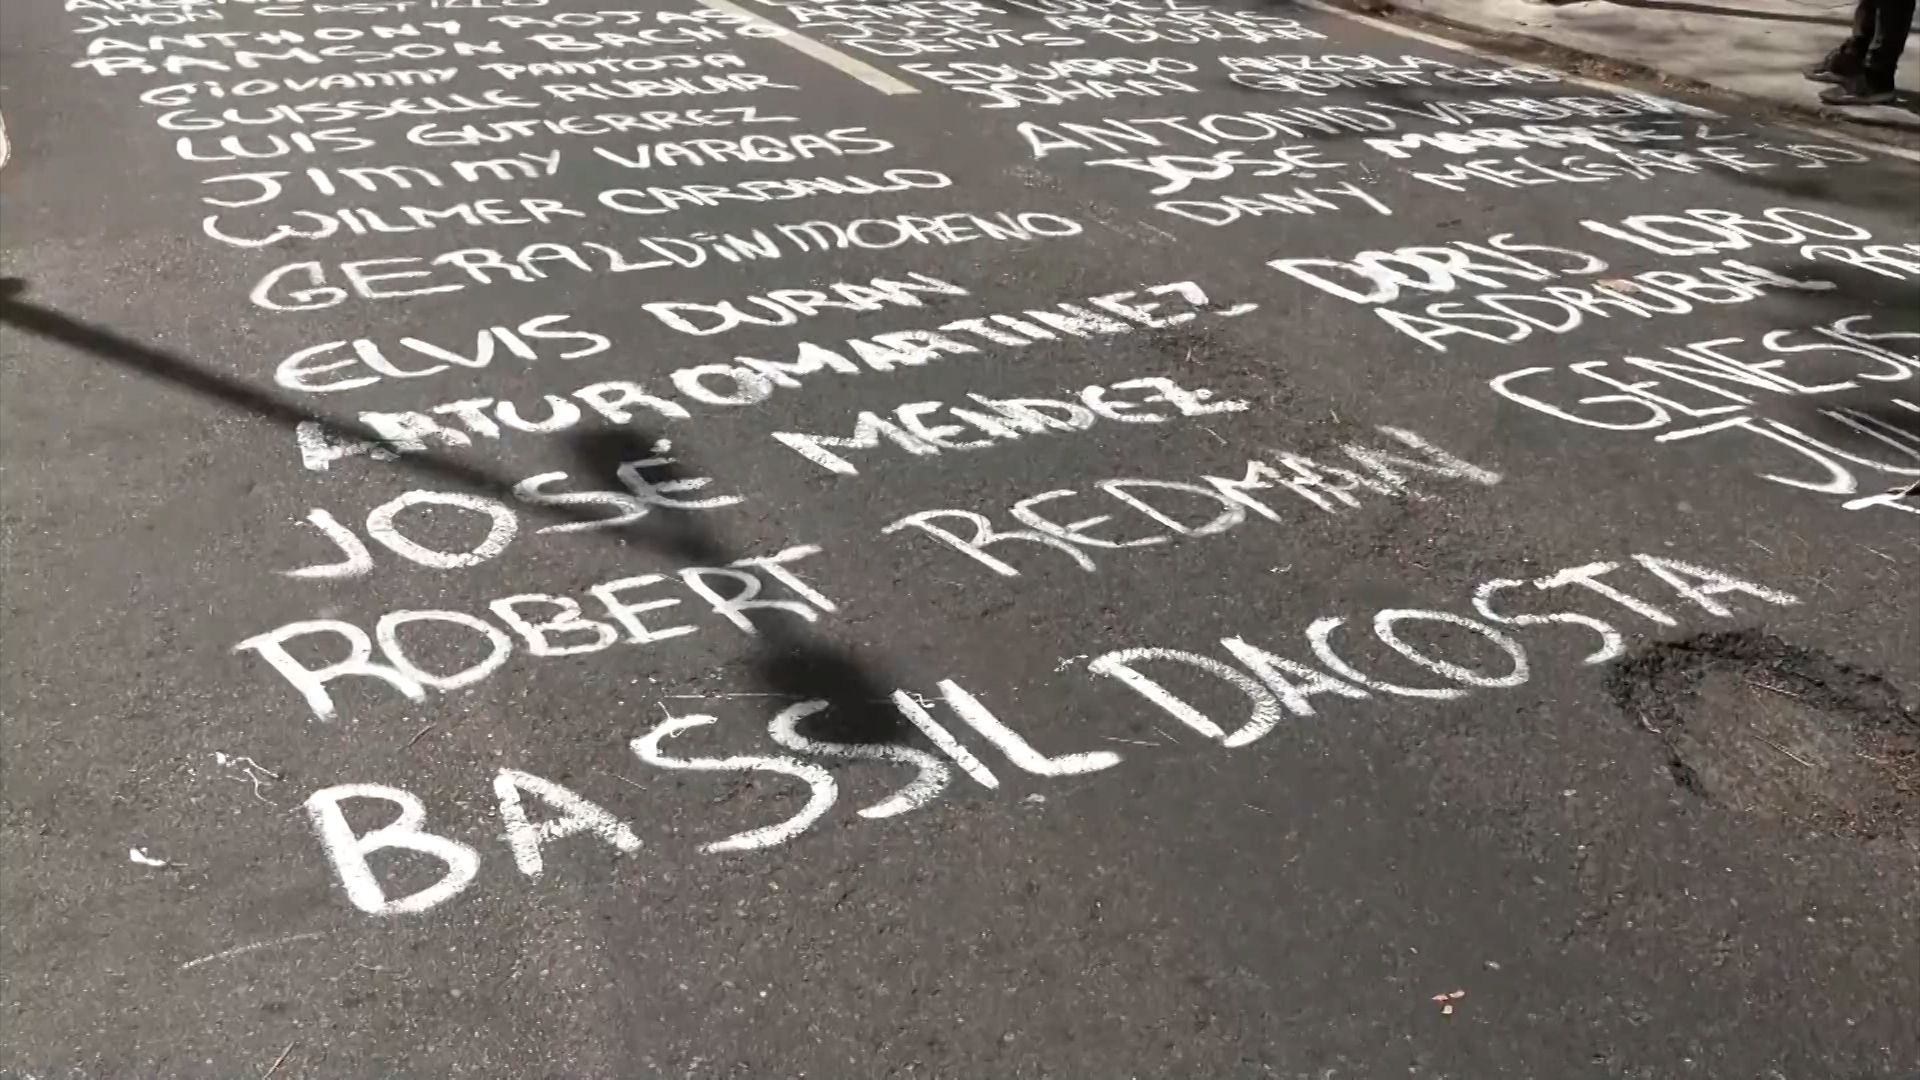 JHON CASTILLO
ANTHONY ROJAS
RAMSON BACHO
GIOVANNY PANTOJA
GUISSELLE RUBILAR
LUIS GUTIERREZ
JIMMY VARGAS
WILMER CARBALLO
GERALDIN MORENO
ELVIS DURAN
ARTURO MARTINEZ
JOSÉ MENDEZ
ROBERT REDMAN
BASSIL DACOSTA
DEIVIS DURAN
EDUARDO ANZOLA
JOHAN
ANTONIO VALBUENA
JOSE
DANY MELGAREJO
DORIS LOBO
ASDRUBAL
GENESIS